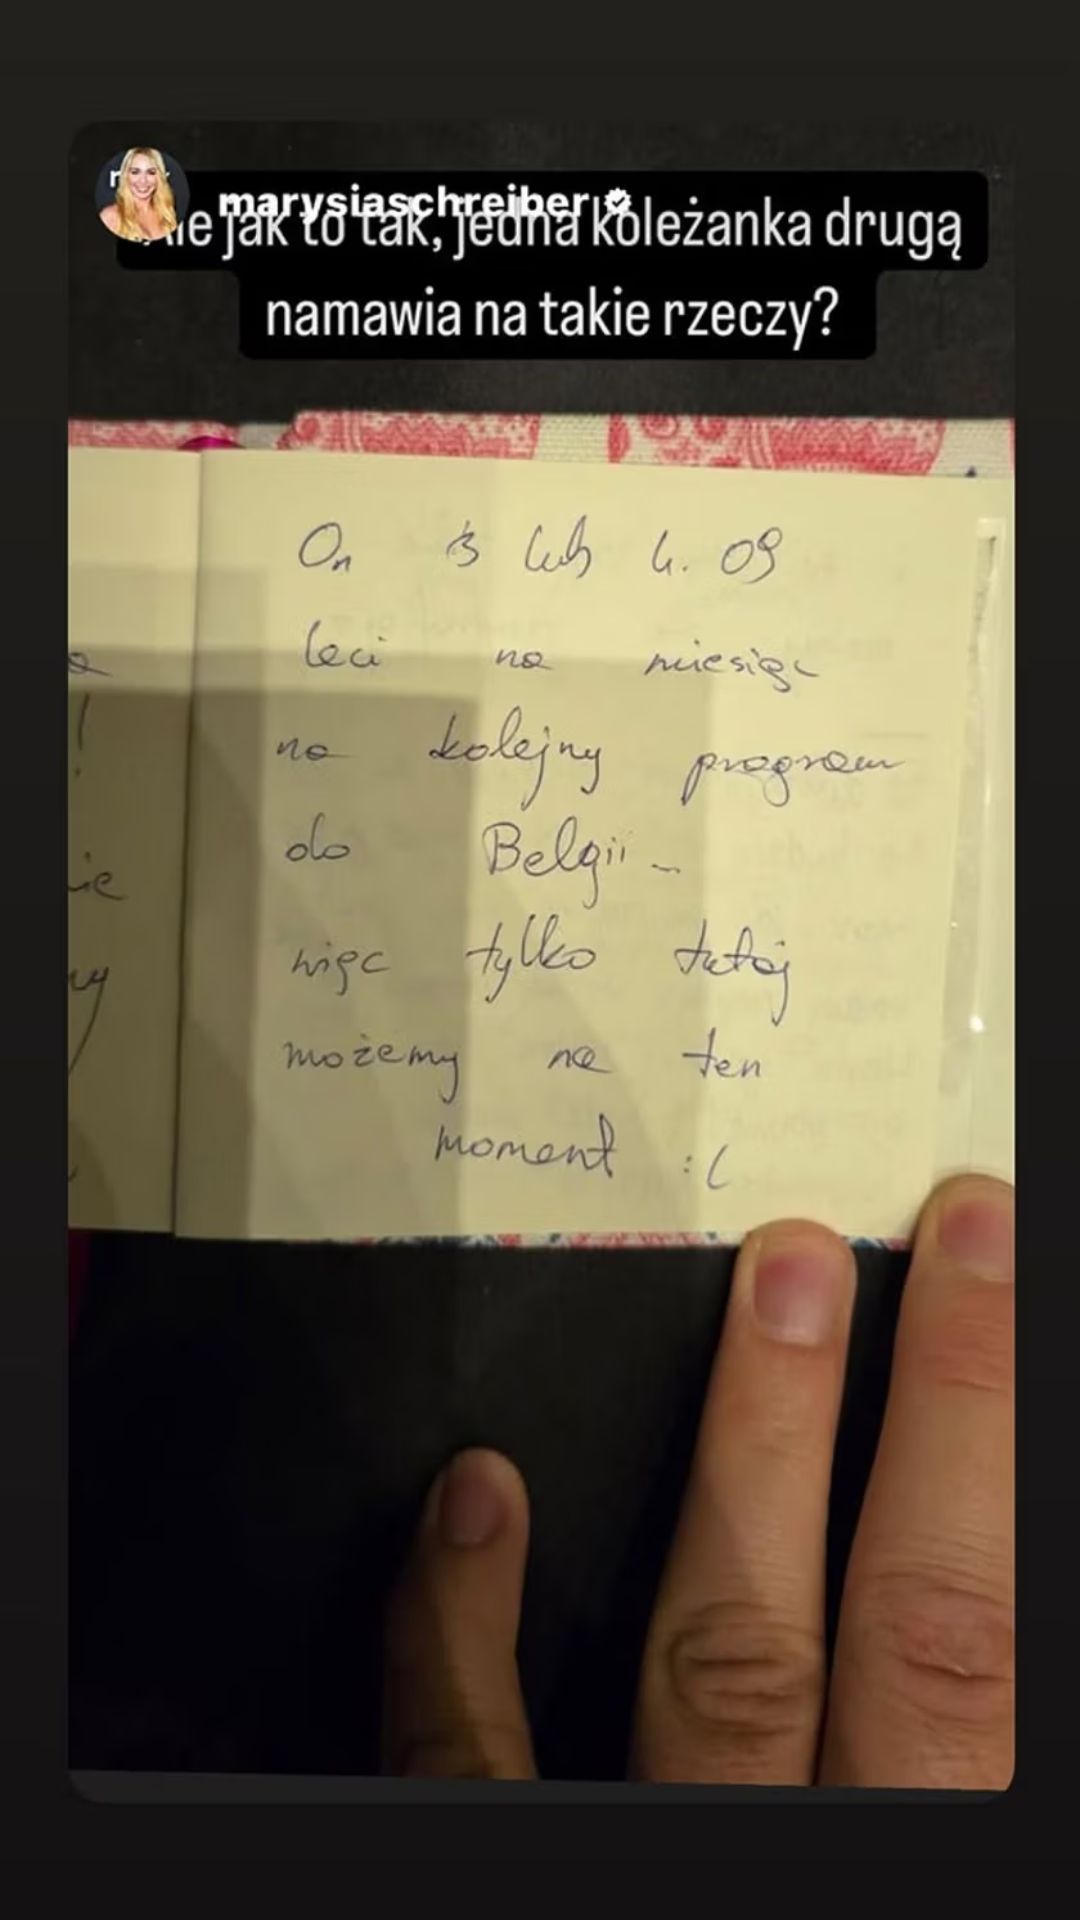 marysiaschreiber
Ale jak to tak, jedna koleżanka drugą
namawia na takie rzeczy?
On 3 lub 4. 09
leci na miesiąc
na kolejny program
do Belgii -
więc tylko tutaj
możemy na ten
moment :(